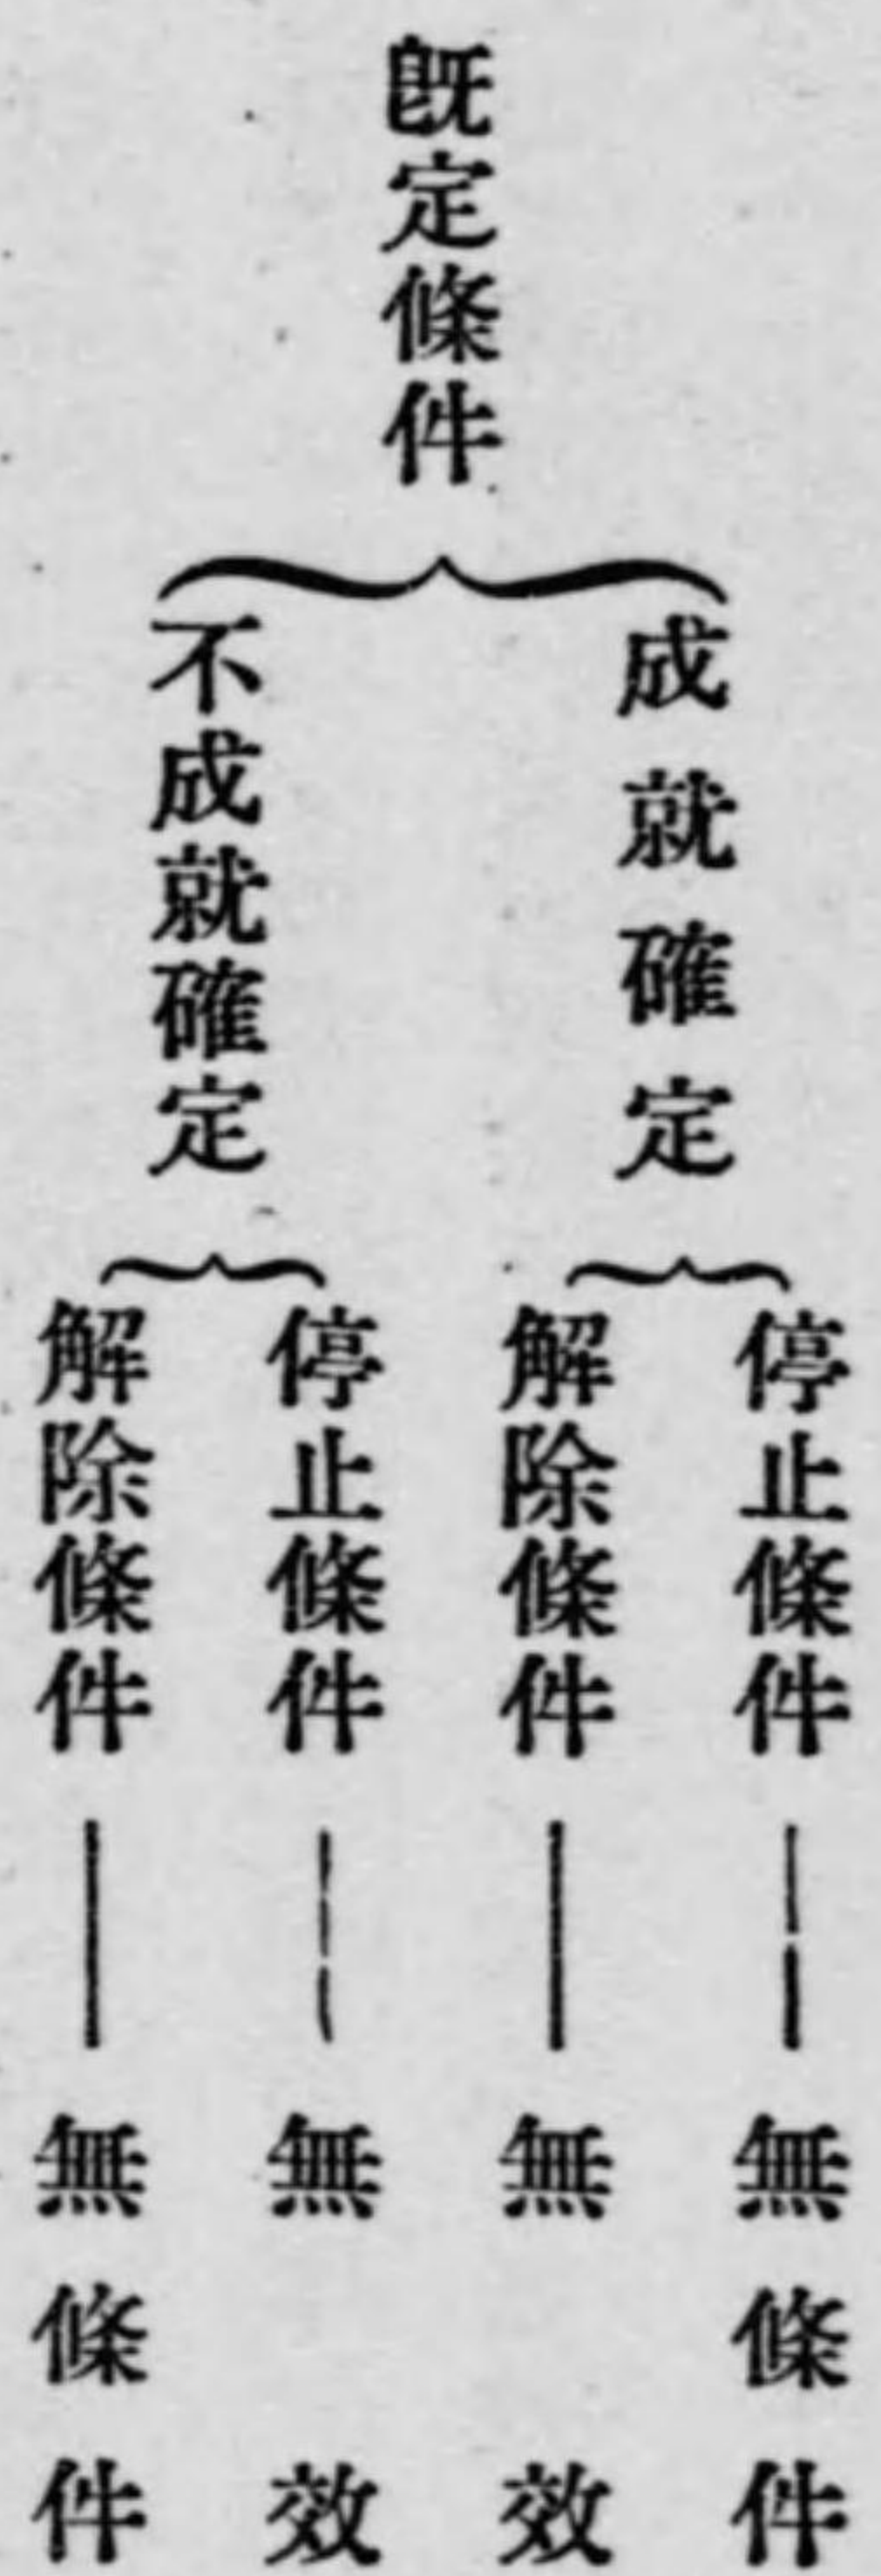 既定條件
成就確定
停止條件——無條件
解除條件——無效
不成就確定
停止條件——無效
解除條件——無條件